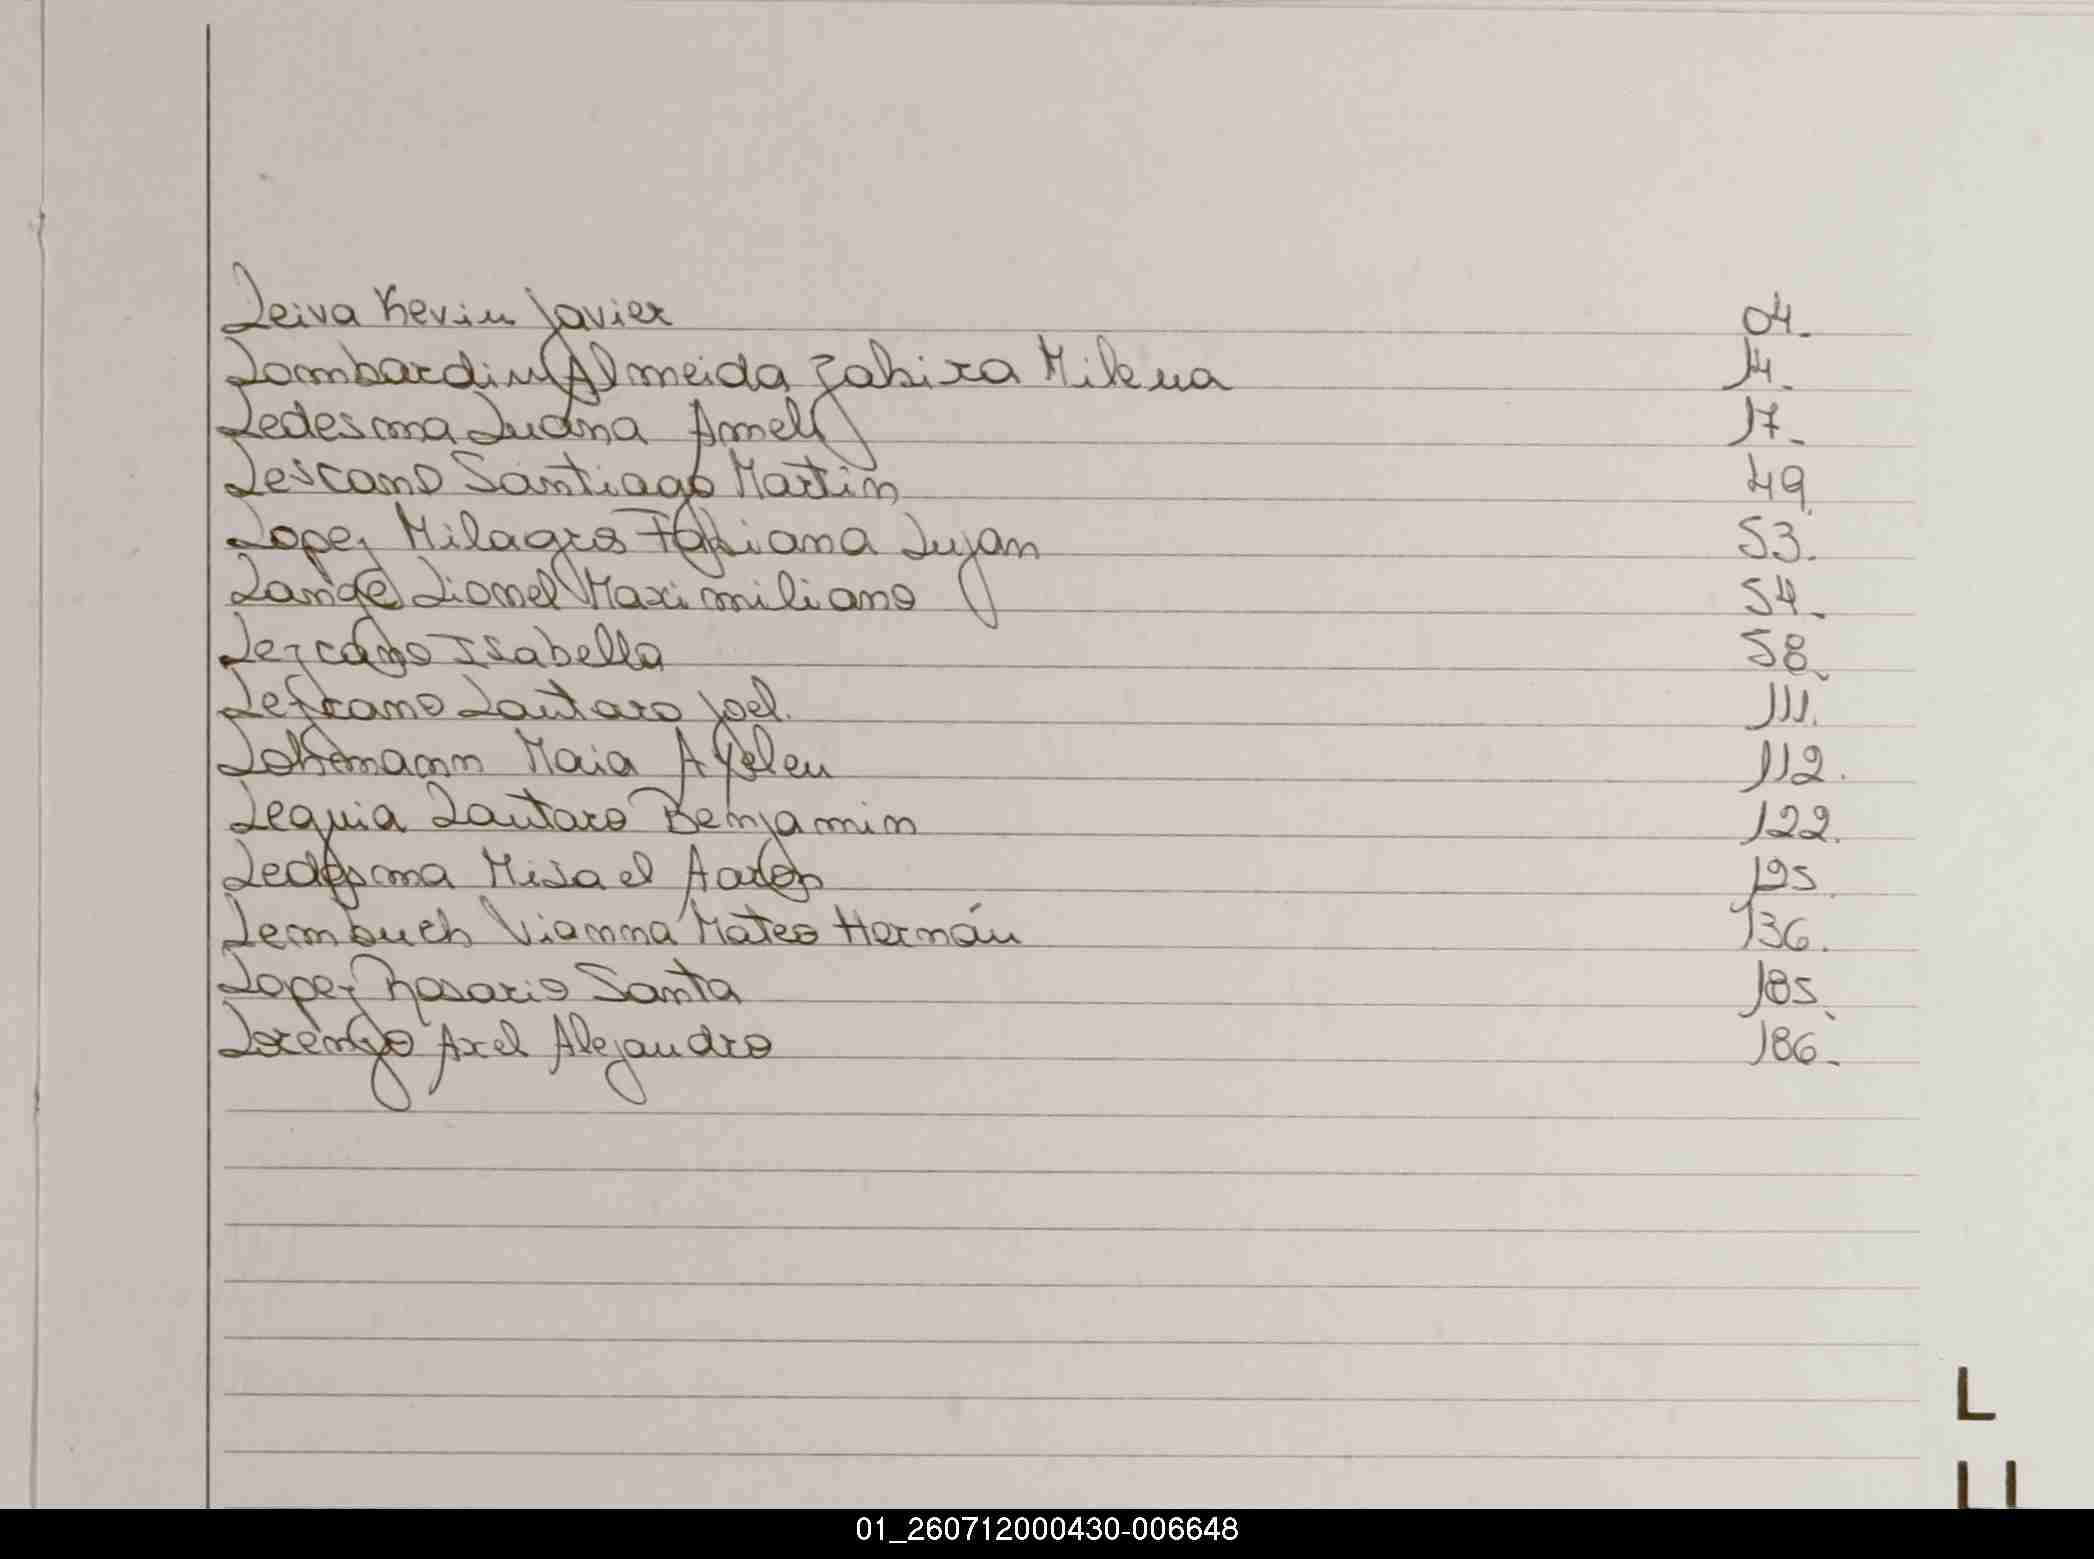 Leiva Kevin Javier 04.
Lombardini Almeida Zahira Milena 14.
Ledesma Luana Amely 17.
Lescano Santiago Martin 49.
Lopez Milagros Fabiana Lujan 53.
Lange Lionel Maximiliano 54.
Lezcano Isabella 58.
Lezcano Lautaro Joel. 111.
Lohrmann Maia Ayelen 112.
Leguia Lautaro Benjamin 122.
Ledesma Misael Aaron 125.
Lembuch Vianna Mateo Hernán 136.
Lopez Rosario Santa 185.
Lorenzo Axel Alejandro 186.
L
LL
01_260712000430-006648